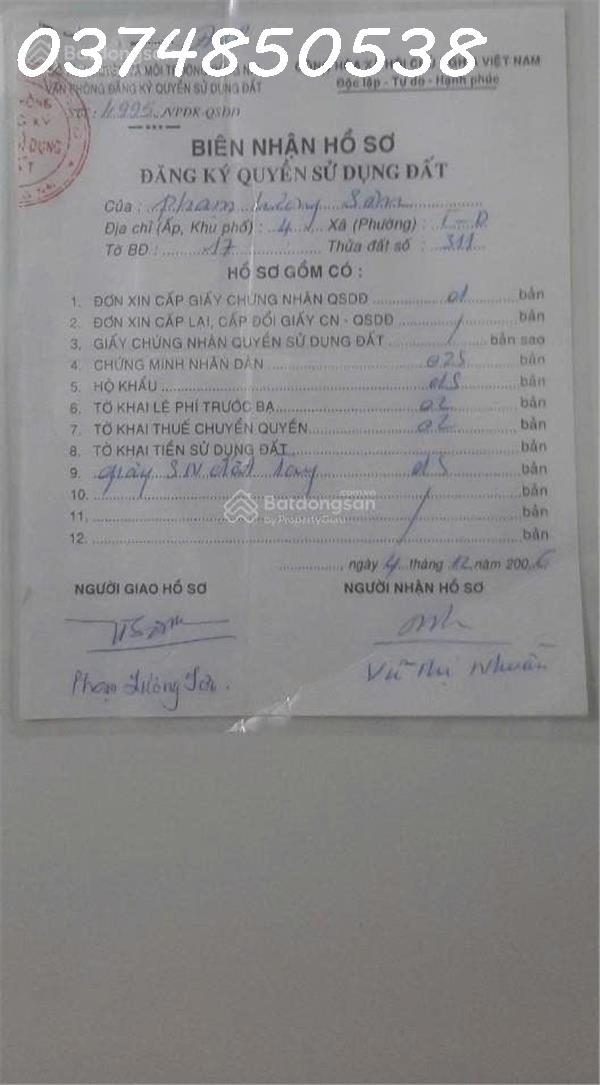 0374850538
VIỆT NAM
Độc lập - Tự do - Hạnh phúc
VĂN PHÒNG ĐĂNG KÝ QUYỀN SỬ DỤNG ĐẤT
SỐ: 4995/VPĐK-QSDĐ
BIÊN NHẬN HỒ SƠ
ĐĂNG KÝ QUYỀN SỬ DỤNG ĐẤT
Của : Phạm
Địa chỉ (Ấp, Khu phố) : 4 Xã (Phường) :
Tờ BĐ: 17 Thửa đất số : 311
HỒ SƠ GỒM CÓ :
1. ĐƠN XIN CẤP GIẤY CHỨNG NHẬN QSDĐ 01 bản
2. ĐƠN XIN CẤP LẠI, CẤP ĐỔI GIẤY CN - QSDĐ / bản
3. GIẤY CHỨNG NHẬN QUYỀN SỬ DỤNG ĐẤT / bản sao
4. CHỨNG MINH NHÂN DÂN 02S bản
5. HỘ KHẨU bản
6. TỜ KHAI LỆ PHÍ TRƯỚC BẠ 02 bản
7. TỜ KHAI THUẾ CHUYỂN QUYỀN 02 bản
8. TỜ KHAI TIỀN SỬ DỤNG ĐẤT bản
9. giấy bản
10. bản
11. bản
12. bản
Batdongsan.com.vn
by PropertyGuru
ngày 4 tháng 12 năm 2006
NGƯỜI GIAO HỒ SƠ NGƯỜI NHẬN HỒ SƠ
Phạm Vũ Thị Nhuần